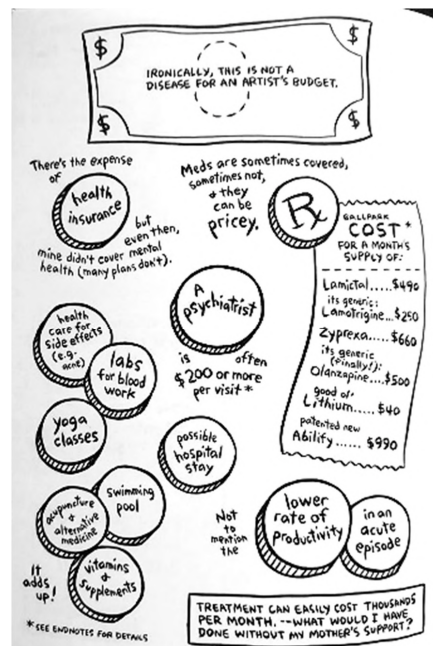 $ $
IRONICALLY, THIS IS NOT A
DISEASE FOR AN ARTIST'S BUDGET.
$ $
There's the expense
of
health
insurance
but
even then,
mine didn't cover mental
health (many plans don't).
Meds are sometimes covered,
sometimes not,
& they
can be
pricey.
Rx
BALLPARK
COST*
FOR A MONTH'S
SUPPLY OF:
Lamictal.....$490
its generic:
Lamotrigine...$250
Zyprexa.....$660
its generic
(finally!):
Olanzapine...$500
good ol'
Lithium..... $40
patented new
Abilify...... $990
A
psychiatrist
is often
$200 or more
per visit*
health
care for
side effects
(e.g.
acne)
labs
for blood
work
yoga
classes
possible
hospital
stay
swimming
pool
acupuncture &
alternative
medicine
vitamins &
supplements
It
adds
up!
Not
to
mention
the
lower
rate of
productivity
in an
acute
episode
TREATMENT CAN EASILY COST THOUSANDS
PER MONTH. --WHAT WOULD I HAVE
DONE WITHOUT MY MOTHER'S SUPPORT?
*SEE ENDNOTES FOR DETAILS